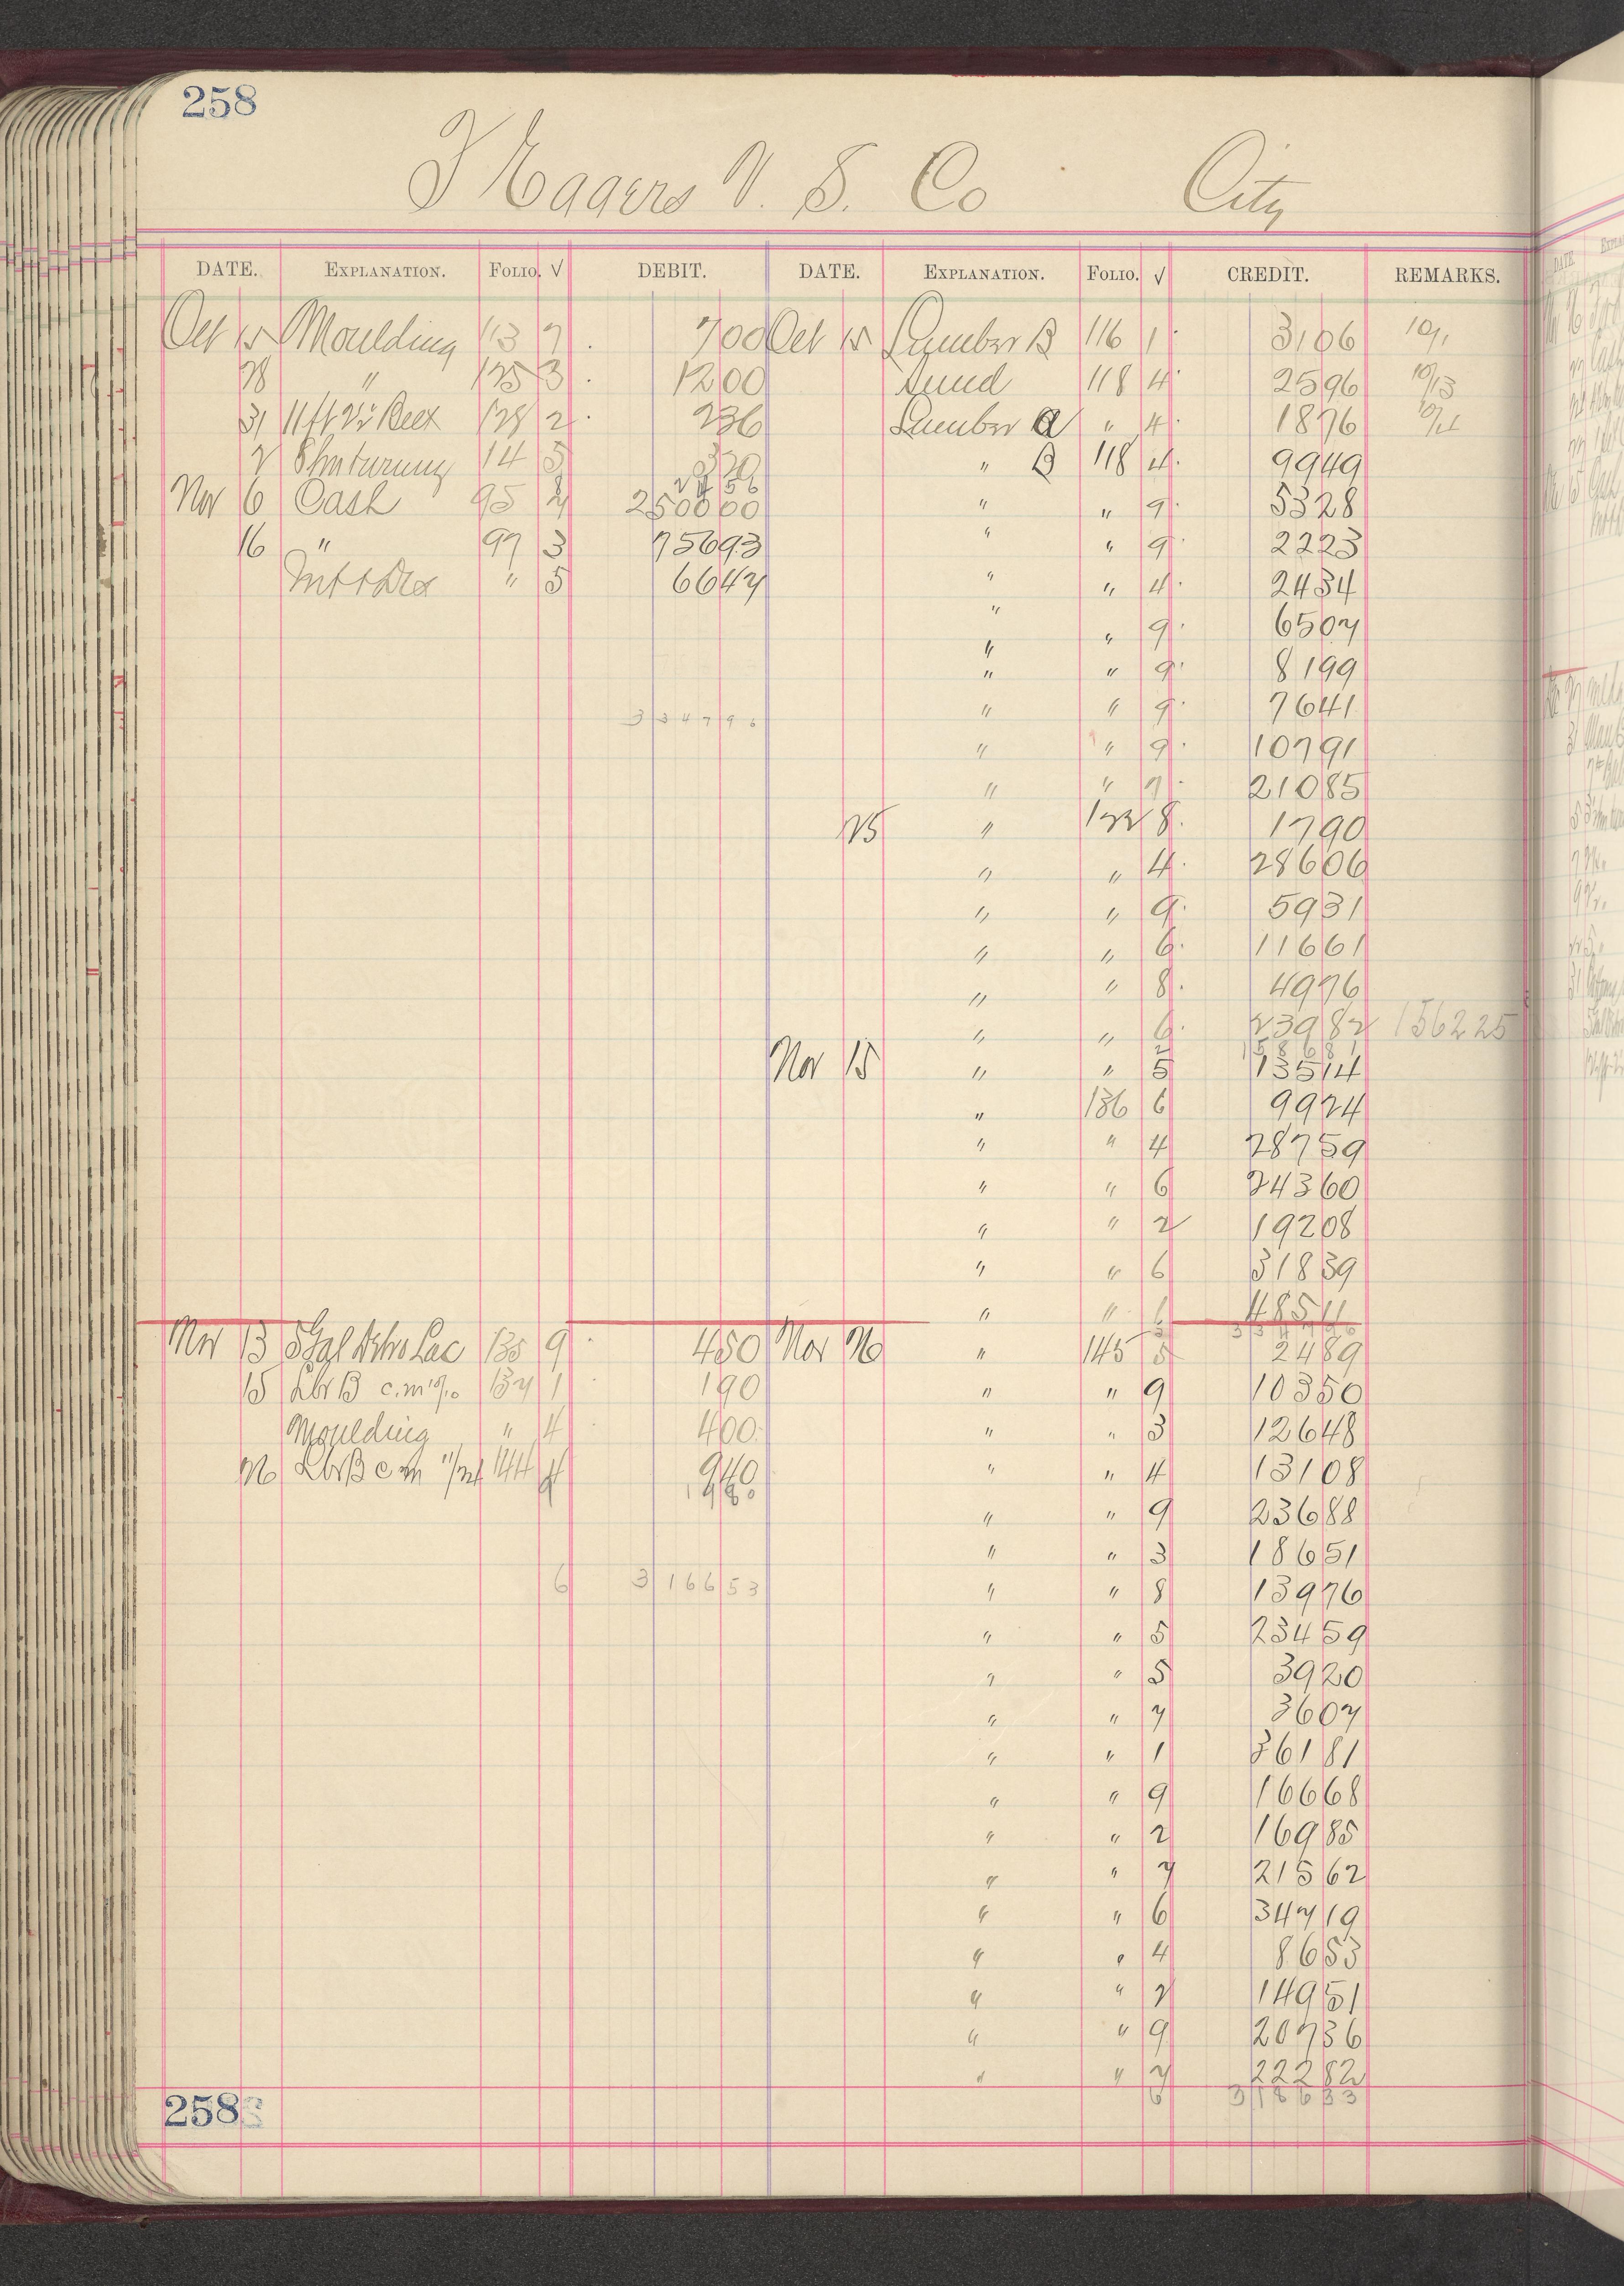 258
J Eggers V. S. Co City
DATE. EXPLANATION. FOLIO. √ DEBIT. DATE. EXPLANATION. FOLIO. √ CREDIT. REMARKS.
Oct 15 Moulding 113 7 700 Oct 15 Lumber B 116 1 3106 10/1
28 " 125 3 1200 Sund 118 4 2596 10/13
31 11 ft 2½ Belt 128 2 236 Lumber a " 4 1876
2 14 5 320 " B 118 4 9949
Nov 6 Cash 95 7 250000 " " 9 5328
16 " 97 3 75693 " " 9 2223
Int + Dis " 5 6647 " " 4 2434
" " 9 6507
" " 9 8199
334796 " " 9 7641
" " 9 10791
" " 7 21085
25 " 122 8 1790
" " 4 28606
" " 9 5931
" " 6 11661
" " 8 4976
" " 6 23982 156225
158681
Nov 15 " " 5 13514
" 136 6 9924
" " 4 28759
" " 6 24360
" " 2 19208
" " 6 31839
" " 6 48511
334796
Nov 13 5 Gal Lac 135 9 450 Nov 26 " 145 5 2489
15 Lbr B c.m 137 1 190 " " 9 10350
Moulding " 4 400 " " 3 12648
26 Lbr B c m 11/24 144 4 940 " " 4 13108
1980
" " 9 23688
" " 3 18651
6 316653 " " 8 13976
" " 5 23459
" " 5 3920
" " 7 3607
" " 1 36181
" " 9 16668
" " 2 16985
" " 7 21562
" " 6 34719
" " 4 8653
" " 2 14951
" " 9 20736
" " 7 22282
258 6 318633